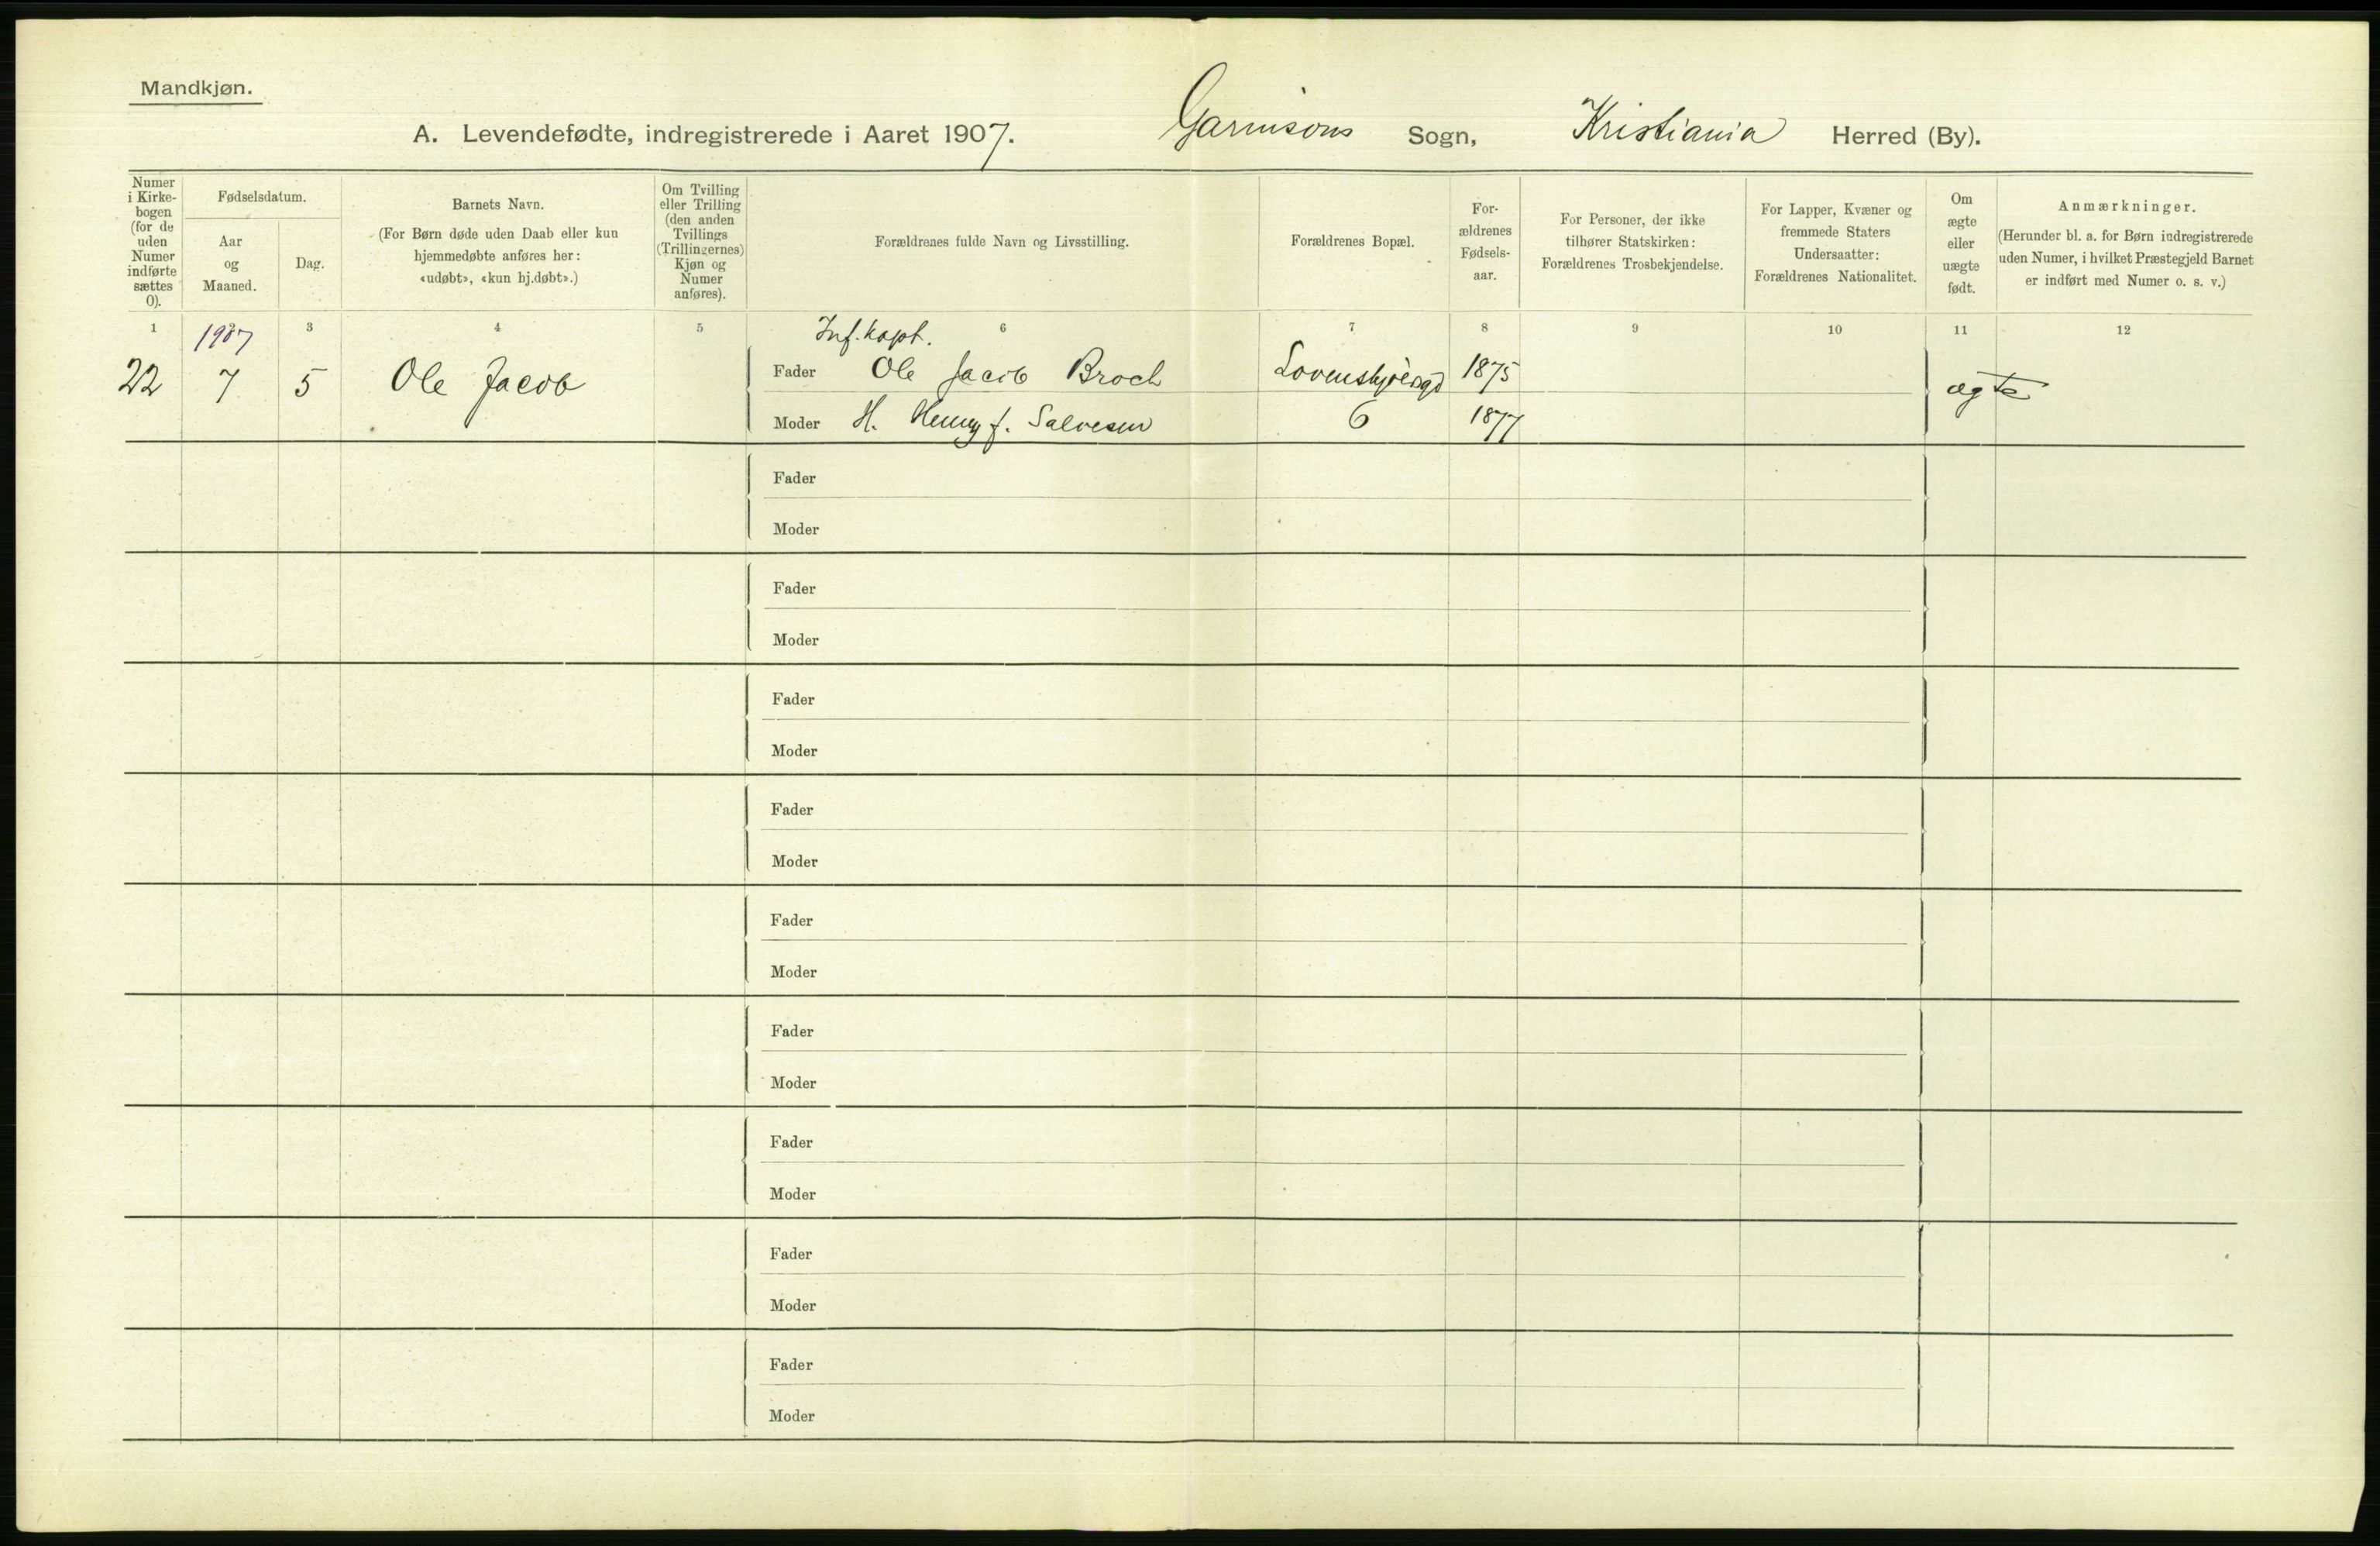 Mandkjøn.
A. Levendefødte, indregistrerede i Aaret 1907. Garnisons Sogn, Kristiania Herred (By).
Numer i Kirke-bogen (for de uden Numer indførte sættes 0).
Fødselsdatum.
Aar og Maaned.
Dag.
Barnets Navn.
(For Børn døde uden Daab eller kun
hjemmedøbte anføres her:
«udøbt», «kun hj.døbt».)
Om Tvilling
eller Trilling
(den anden
Tvillings
(Trillingernes)
Kjøn og
Numer
anføres).
Forældrenes fulde Navn og Livsstilling.
Forældrenes Bopæl.
For-
ældrenes
Fødsels-
aar.
For Personer, der ikke
tilhører Statskirken:
Forældrenes Trosbekjendelse.
For Lapper, Kvæner og
fremmede Staters
Undersaatter:
Forældrenes Nationalitet.
Om
ægte
eller
uægte
født.
Anmærkninger.
(Herunder bl. a. for Børn indregistrerede
uden Numer, i hvilket Præstegjeld Barnet
er indført med Numer o. s. v.)
1 3 4 5 6 7 8 9 10 11 12
1907 Inf. kapt.
22 7 5 Ole Jacob Fader Ole Jacob Broch 1875 ægte
Moder H. f. Salvesen 6 1877
Fader
Moder
Fader
Moder
Fader
Moder
Fader
Moder
Fader
Moder
Fader
Moder
Fader
Moder
Fader
Moder
Fader
Moder